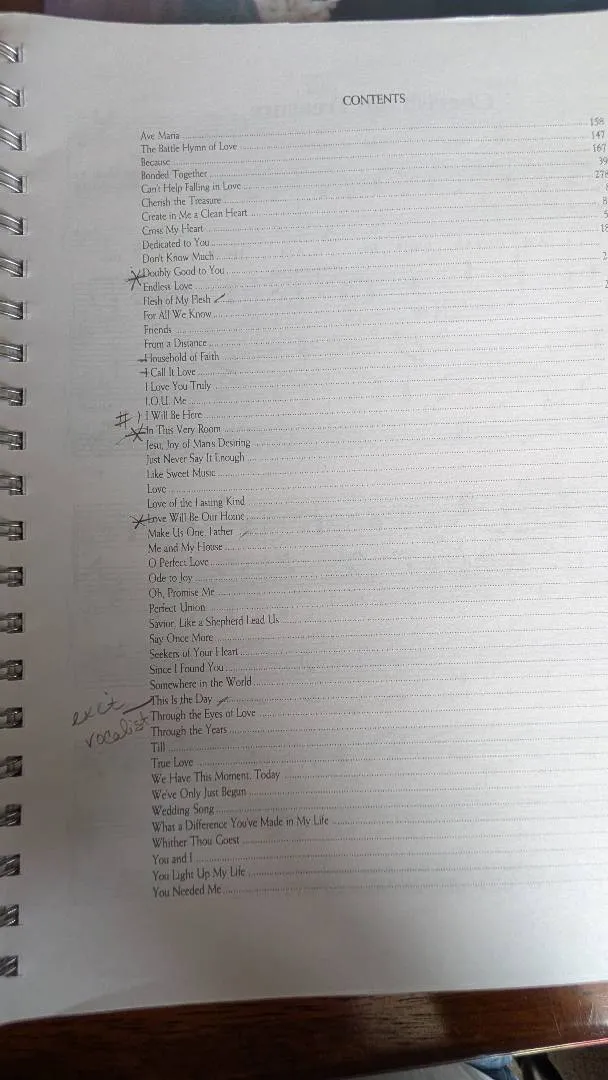 CONTENTS
Ave Maria 158
The Battle Hymn of Love 147
Because 167
Bonded Together 39
Can't Help Falling in Love 278
Cherish the Treasure
Create in Me a Clean Heart 8
Cross My Heart 5
Dedicated to You 18
Don't Know Much
Doubly Good to You 2
Endless Love
Flesh of My Flesh 2
For All We Know
Friends
From a Distance
Household of Faith
I Call It Love
I Love You Truly
I.O.U. Me
# 1 I Will Be Here
In This Very Room
Jesu, Joy of Man's Desiring
Just Never Say It Enough
Like Sweet Music
Love
Love of the Lasting Kind
Love Will Be Our Home
Make Us One, Father
Me and My House
O Perfect Love
Ode to Joy
Oh, Promise Me
Perfect Union
Savior, Like a Shepherd Lead Us
Say Once More
Seekers of Your Heart
Since I Found You
Somewhere in the World
exit This Is the Day
vocalist Through the Eyes of Love
Through the Years
Till
True Love
We Have This Moment, Today
We've Only Just Begun
Wedding Song
What a Difference You've Made in My Life
Whither Thou Goest
You and I
You Light Up My Life
You Needed Me